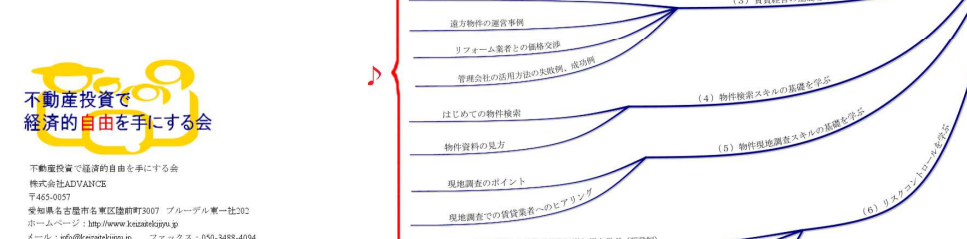 不動産投資で
経済的自由を手にする会
不動産投資で経済的自由を手にする会
株式会社ADVANCE
〒465-0057
愛知県名古屋市名東区陸前町3007 ブルーデル東一社202
ホームページ:http://www.keizaitekijiyu.jp
メール:info@keizaitekijiyu.jp ファックス:050-3488-4094
♪
遠方物件の運営事例
リフォーム業者との価格交渉
管理会社の活用方法の失敗例、成功例
(4)物件検索スキルの基礎を学ぶ
はじめての物件検索
物件資料の見方
(5)物件現地調査スキルの基礎を学ぶ
現地調査のポイント
現地調査での賃貸業者へのヒアリング
(6)リスクコントロールを学ぶ